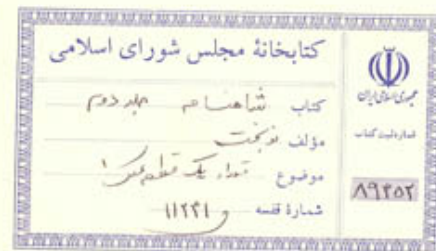 کتابخانهٔ مجلس شورای اسلامی
کتاب شاهنامه جلد دوم
مؤلف نوبخت
موضوع تعداد یک قطعه عکس ۱
شمارهٔ قفسه و ۱۱۲۳۱
جمهوری اسلامی ایران
شماره ثبت کتاب
۸۹۲۵۲